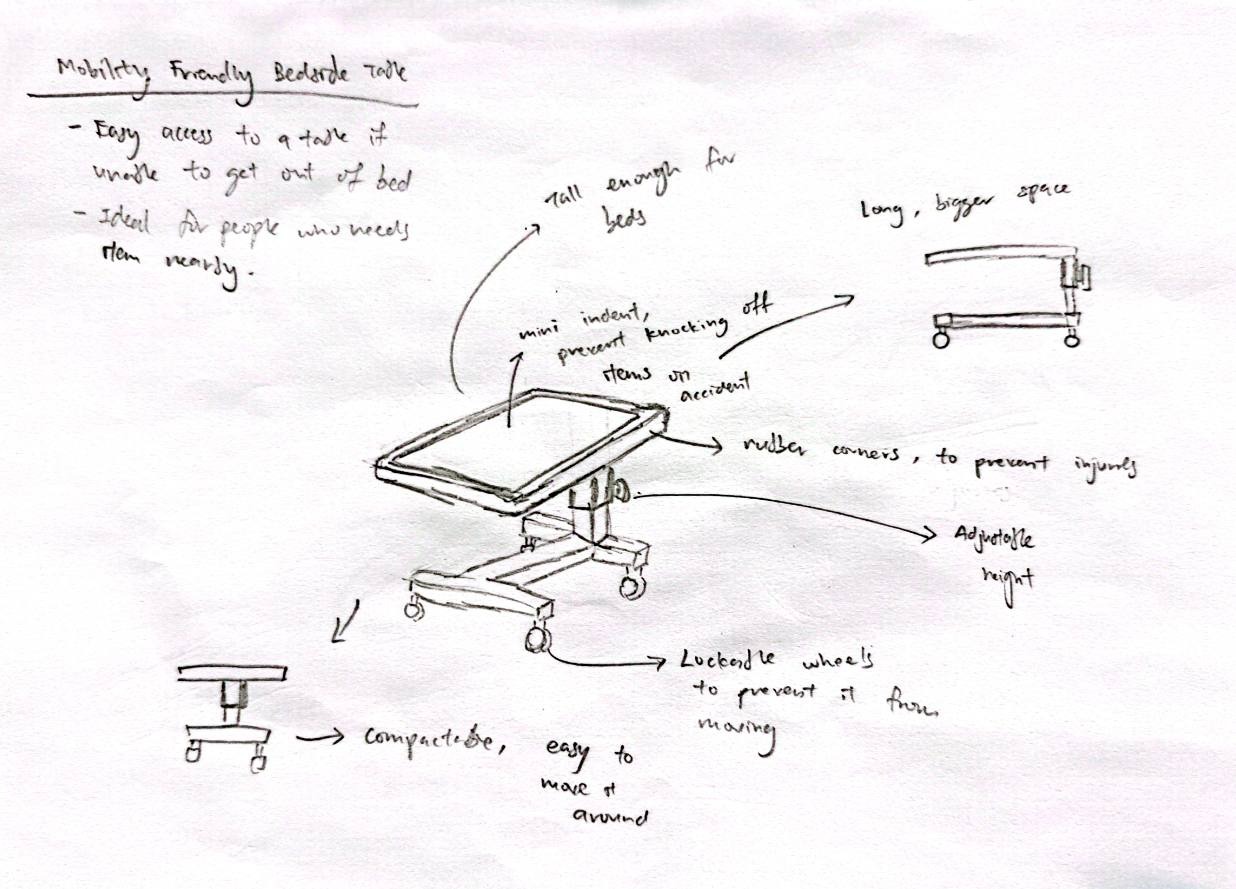 Mobility Friendly Bedside Table
- Easy access to a table if
unable to get out of bed
- Ideal for people who needs
item nearby.
Tall enough for
beds
Long, bigger space
mini indent,
prevent knocking off
items on
accident
rubber corners, to prevent injuries
Adjustable
height
Lockable wheels
to prevent it from
moving
compactable, easy to
move it
around